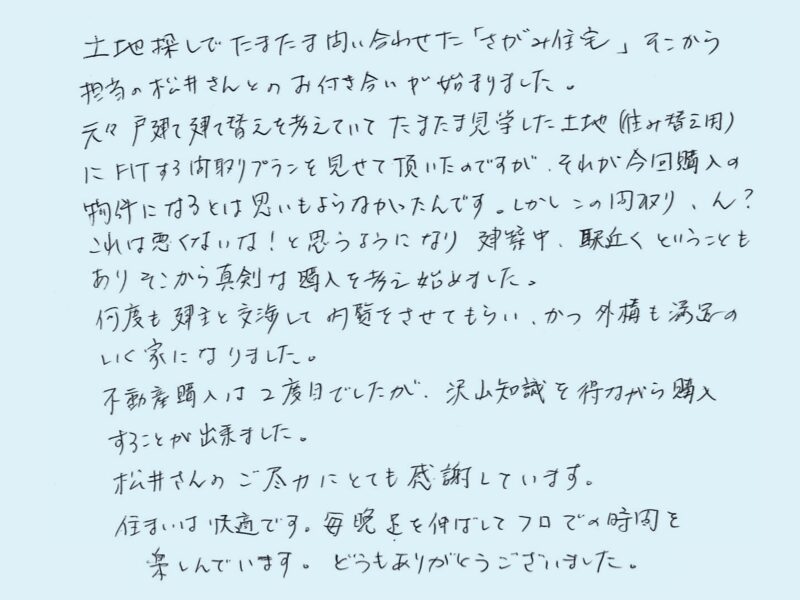 土地探しでたまたま問い合わせた「さがみ住宅」そこから
担当の松井さんとのお付き合いが始まりました。
元々戸建て建て替えを考えていてたまたま見学した土地(住み替え用)
にFITする間取りプランを見せて頂いたのですが、それが今回購入の
物件になるとは思いもよらなかったんです。しかしこの間取り、ん?
これは悪くないな!と思うようになり建築中、駅近くということも
ありそこから真剣な購入を考え始めました。
何度も建主と交渉して内覧をさせてもらい、かつ外構も満足の
いく家になりました。
不動産購入は2度目でしたが、沢山知識を得ながら購入
することが出来ました。
松井さんのご尽力にとても感謝しています。
住まいは快適です。毎晩足を伸ばしてフロでの時間を
楽しんでいます。どうもありがとうございました。